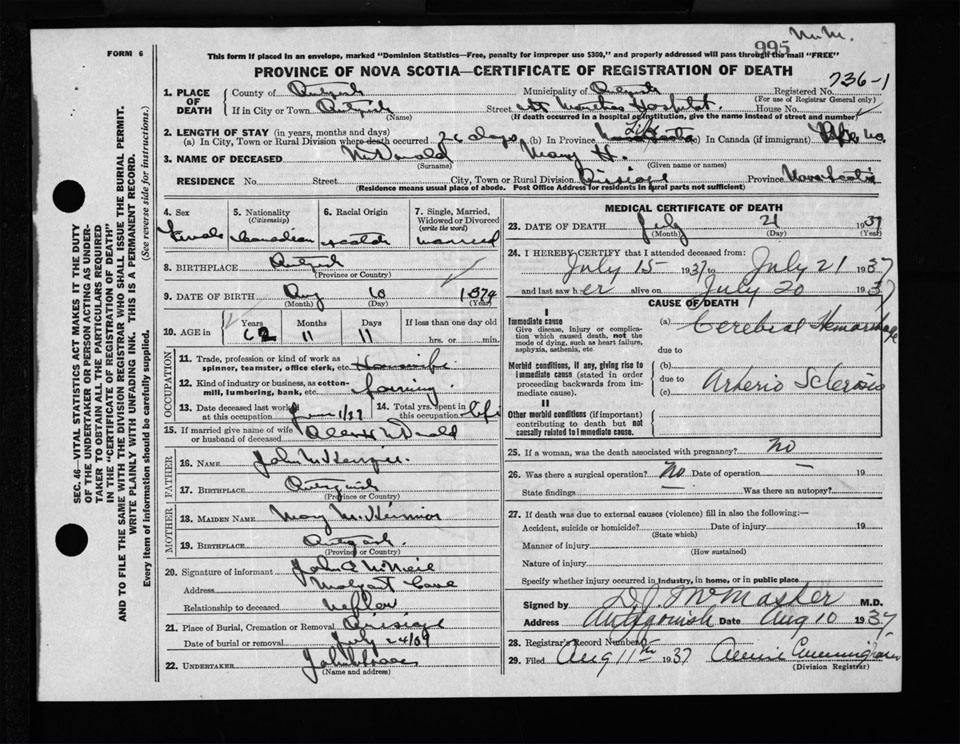 M.M.
995
FORM 6
This form if placed in an envelope, marked "Dominion Statistics—Free, penalty for improper use $300," and properly addressed will pass through the mail "FREE"
PROVINCE OF NOVA SCOTIA—CERTIFICATE OF REGISTRATION OF DEATH
736-1
SEC. 46—VITAL STATISTICS ACT MAKES IT THE DUTY
OF THE UNDERTAKER OR PERSON ACTING AS UNDER-
TAKER TO OBTAIN ALL THE PARTICULARS REQUIRED
IN THE "CERTIFICATE OF REGISTRATION OF DEATH"
AND TO FILE THE SAME WITH THE DIVISION REGISTRAR WHO SHALL ISSUE THE BURIAL PERMIT.
WRITE PLAINLY WITH UNFADING INK. THIS IS A PERMANENT RECORD.
Every item of information should be carefully supplied. (See reverse side for instructions.)
1. PLACE OF DEATH County of Antigonish Municipality of Antigonish Registered No.
(For use of Registrar General only)
If in City or Town Antigonish Street St. Marthas Hospital. House No.
(Name) (If death occurred in a hospital or institution, give the name instead of street and number)
2. LENGTH OF STAY (in years, months and days)
(a) In City, Town or Rural Division where death occurred 26 days (b) In Province Life (c) In Canada (if immigrant)
3. NAME OF DECEASED McDonald Mary H.
(Surname) (Given name or names)
RESIDENCE No. Street City, Town or Rural Division Arisaig Province Nova Scotia
(Residence means usual place of abode. Post Office Address for residents in rural parts not sufficient)
4. Sex 5. Nationality (Citizenship) 6. Racial Origin 7. Single, Married, Widowed or Divorced (write the word)
Female Canadian Scotch Married
8. BIRTHPLACE Antigonish
(Province or Country)
9. DATE OF BIRTH Aug 10 1874
(Month) (Day) (Year)
10. AGE in Years Months Days If less than one day old
62 11 11 hrs. or min.
OCCUPATION
11. Trade, profession or kind of work as spinner, teamster, office clerk, etc. Housewife
12. Kind of industry or business, as cotton-mill, lumbering, bank, etc. farming
13. Date deceased last worked at this occupation June 1/37 14. Total yrs. spent in this occupation life
15. If married give name of wife or husband of deceased McDonald
FATHER
16. NAME John
17. BIRTHPLACE Antigonish
(Province or Country)
MOTHER
18. MAIDEN NAME Mary
19. BIRTHPLACE
(Province or Country)
20. Signature of informant John McNeil
Address Malignant Cove
Relationship to deceased Nephew
21. Place of Burial, Cremation or Removal Arisaig
Date of burial or removal July 24/
22. UNDERTAKER John
(Name and address)
MEDICAL CERTIFICATE OF DEATH
23. DATE OF DEATH July 21 1937
(Month) (Day) (Year)
24. I HEREBY CERTIFY that I attended deceased from:
July 15 1937 to July 21 1937
and last saw her alive on July 20 1937
CAUSE OF DEATH
I
Immediate cause (a) Cerebral Hemorrhage
Give disease, injury or complication which caused death, not the mode of dying, such as heart failure, asphyxia, asthenia, etc. due to
Morbid conditions, if any, giving rise to immediate cause (stated in order proceeding backwards from immediate cause). (b)
due to Arterio Sclerosis
(c)
II
Other morbid conditions (if important) contributing to death but not causally related to immediate cause.
25. If a woman, was the death associated with pregnancy? No
26. Was there a surgical operation? No Date of operation — 19
State findings — Was there an autopsy?
27. If death was due to external causes (violence) fill in also the following:—
Accident, suicide or homicide? Date of injury 19
(State which)
Manner of injury
(How sustained)
Nature of injury
Specify whether injury occurred in industry, in home, or in public place
Signed by D J McMaster M.D.
Address Antigonish Date Aug 10 1937
28. Registrar's Record Number
29. Filed Aug 11th 1937 Annie Cunningham
(Division Registrar)